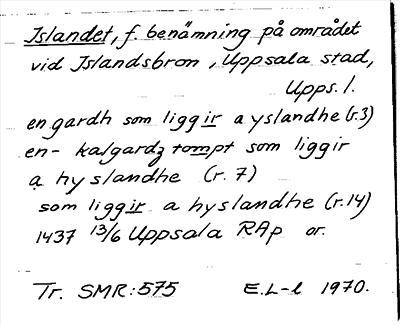 Islandet, f. benämning på området
vid Islandsbron, Uppsala stad,
Upps. l.
en gardh som liggir a yslandhe (r.3)
en- kalgardz tompt som liggir
a hyslandhe (r. 7)
som liggir a hyslandhe (r.14)
1437 13/6 Uppsala RAp or.
Tr. SMR: 575 E.L-l 1970.